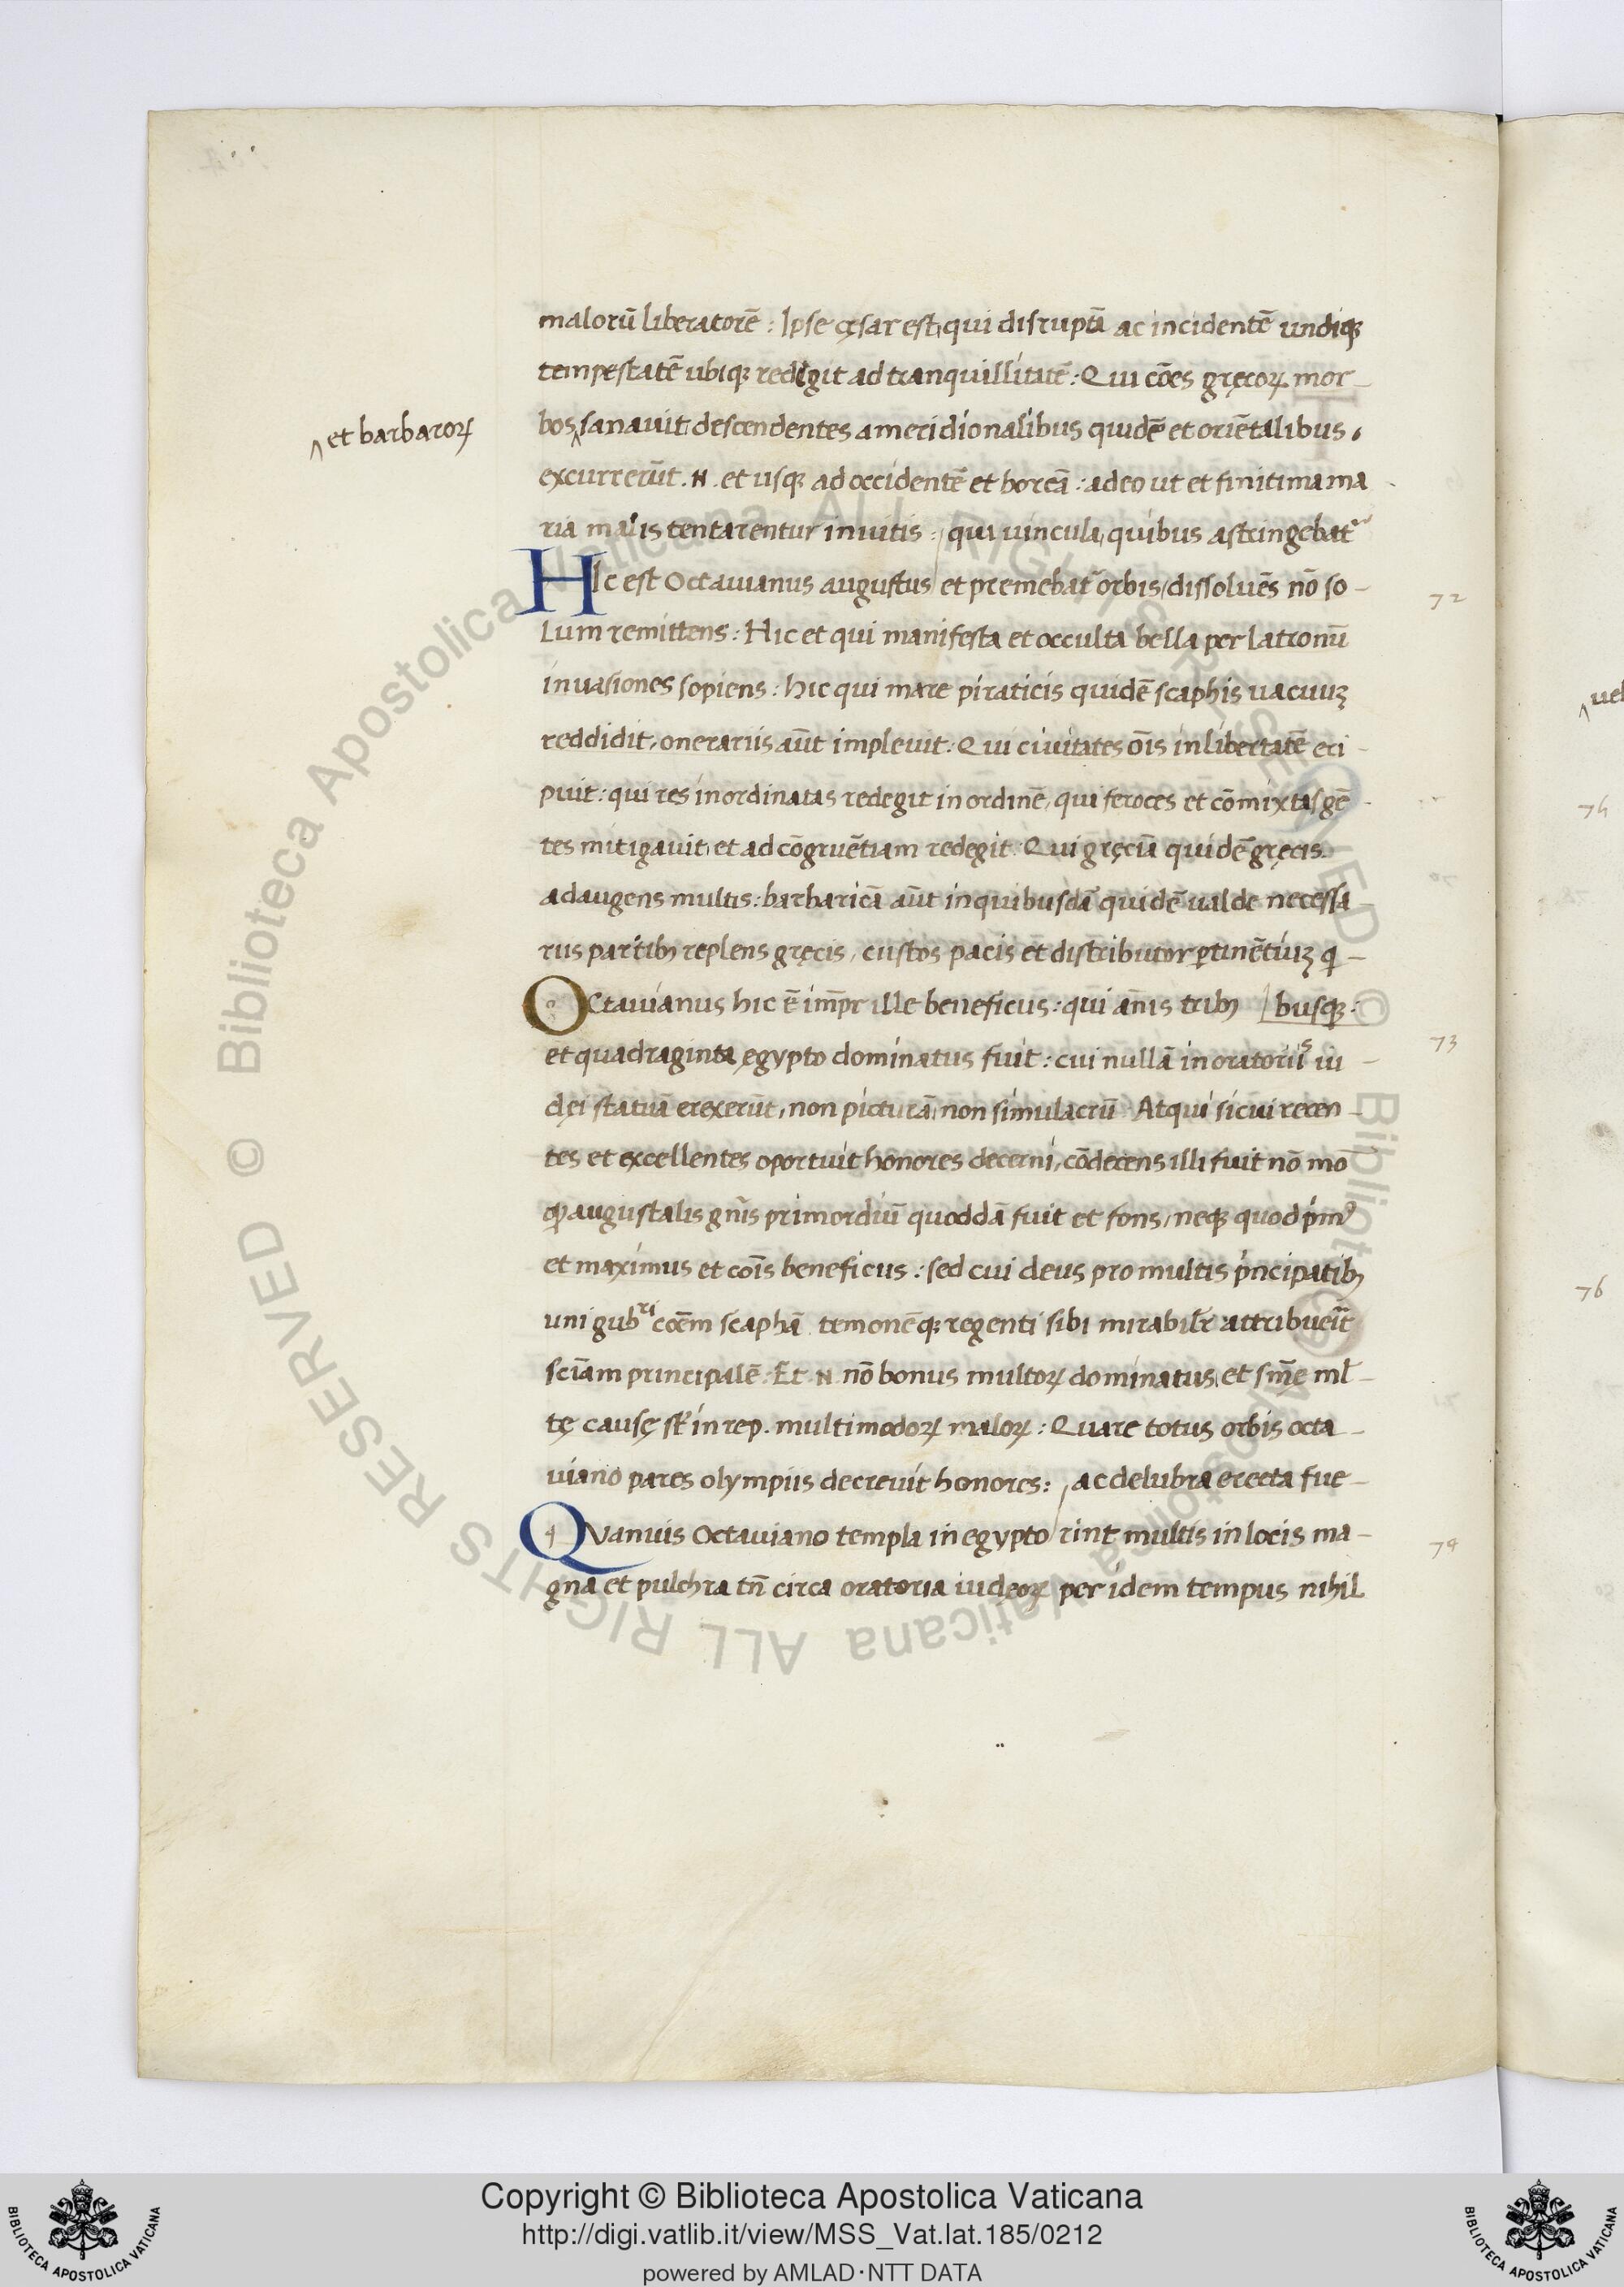 malorū liberatorē : Ipse cęsar est, qui disruptā ac incidentē undiqꝫ
tempestatē ubiqꝫ redigit ad tranquillitatē : Qui cōēs gręcoꝝ mor-
bos ‸ sanauit, descendentes a meridionalibus quidē et oriētalibus ,
‸ et barbaroꝝ
excurrerūt . N . et usqꝫ ad occidentē et boreā : adeo ut et finitima ma
ria malis tentarentur inuitis : qui uincula, quibus astringebat᷑
HIc est Octauianus augustus et premebat᷑ orbis, dissoluēs nō so-
72
Lum remittens : Hic et qui manifesta et occulta bella per latronū
inuasiones sopiens : hic qui mare piraticis quidē scaphis uacuuꝫ
reddidit, onerariis aūt impleuit : Qui ciuitates oīs in libertatē eri-
puit : qui res inordinatas redegit in ordinē, qui feroces et cōmixtas gē-
tes mitigauit, et ad cōgruētiam redegit . Qui gręciā quidē gręcis
adaugens multis : barbaricā aūt in quibusdā quidē ualde necessa-
riis partibꝫ replens gręcis, custos pacis et distributor ꝑtinētiuꝫ q-
OCtauianus hic ē imꝑr ille beneficus : qui anīs tribꝫ busqꝫ :
et quadraginta ęgypto dominatus fuit : cui nullā in oratoriis iu-
73
dęi statuā erexerūt, non picturā, non simulacrū . Atqui si cui recen-
tes et excellentes oportuit honores decerni, cōdecens illi fuit nō mō
ꝙ augustalis gn̄is primordiū quoddā fuit et fons, neqꝫ quod pīmꝰ
et maximus et coīs beneficus : sed cui deus pro multis pīncipatibꝫ
uni gubri coēm scaphā temonēqꝫ regenti sibi mirabilr̄ attribuerit
sciam principalē . Et . N . nō bonus multoꝝ dominatus, et sm̄e ml̄-
tę causę st̄ in rep . multimodoꝝ maloꝝ : Quare totus orbis octa-
uiano pares olympiis decreuit honores : ac delubra erecta fue-
QVanuis Octauiano templa in egypto rint multis in locis ma-
74
gna et pulchra tn̄ circa oratoria iudęoꝝ per idem tempus nihil
uel
74
76
© Biblioteca Apostolica Vaticana ALL RIGHTS RESERVED © Biblioteca Apostolica Vaticana ALL RIGHTS RESERVED
Copyright © Biblioteca Apostolica Vaticana
http://digi.vatlib.it/view/MSS_Vat.lat.185/0212
powered by AMLAD·NTT DATA
BIBLIOTECA APOSTOLICA VATICANA
BIBLIOTECA APOSTOLICA VATICANA